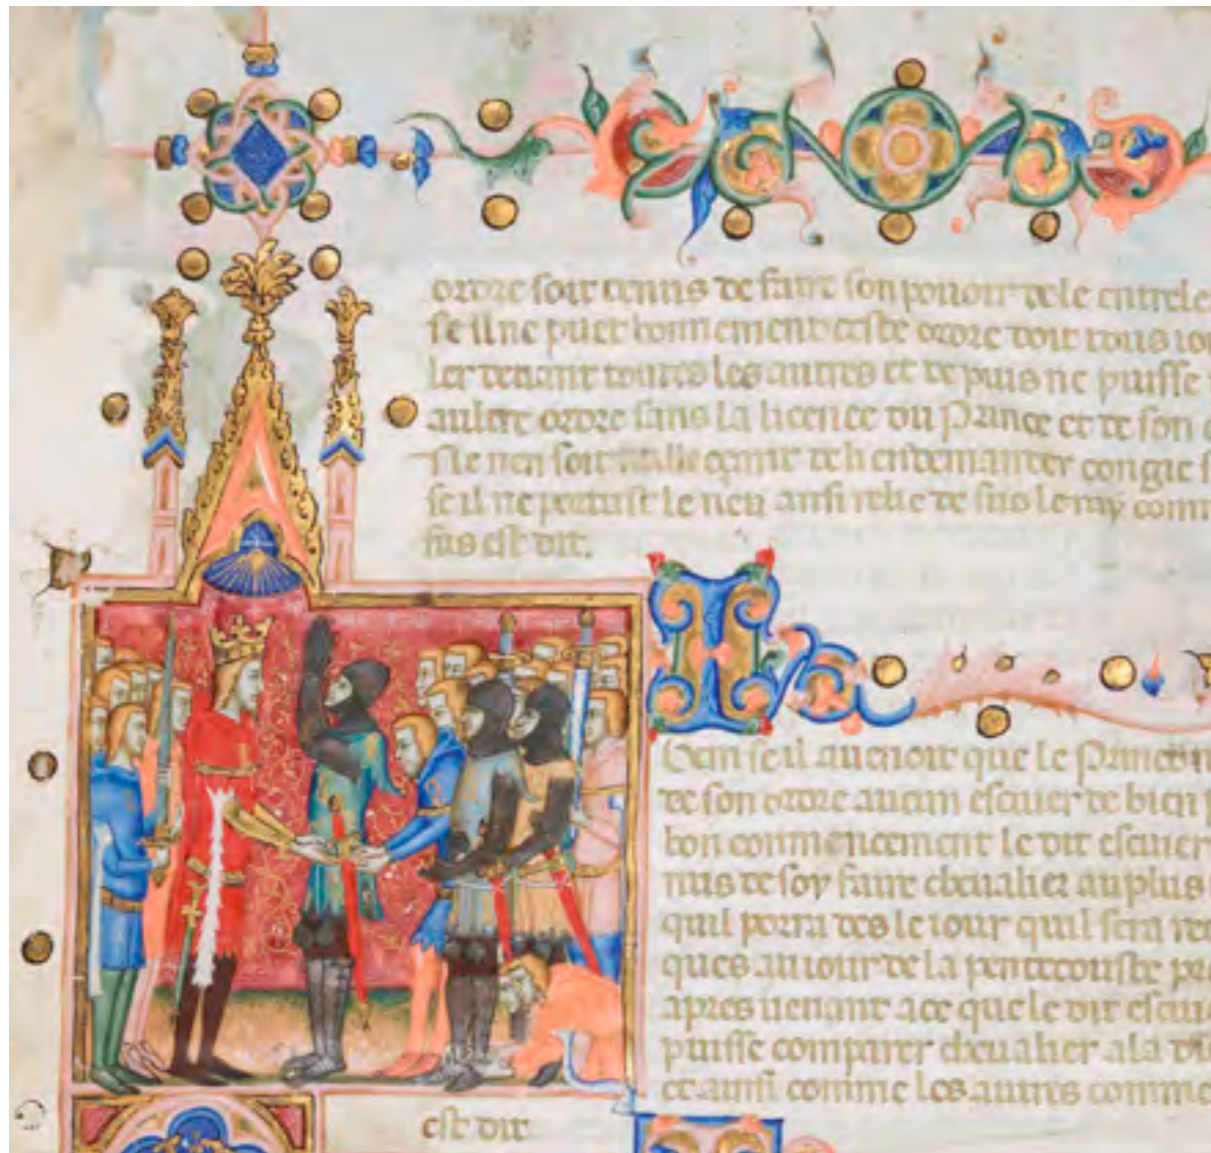 ordre soit tenus de faire son pouoir de le entrele
se il ne puet bonnement ceste ordre doit tous iou
ler deuant toutes les autres et depuis ne puisse
aultre ordre sans la licence du Prince et de son
sil e nen soit tenant de li en demander congie
se il ne portast le neu ansi relie de sus le my comm
sus est dit.
Item se il auenoit que le Prince
de son ordre aucun escuier de bien
bon commencement le dit escuier
nus de soy faire cheualier au plus
quil porra des le iour quil sera re
ques au iour de la pentecouste pr
apres uenant a ce que le dit escui
puisse comparer cheualier a la
et ansi comme les autres comme
est dit